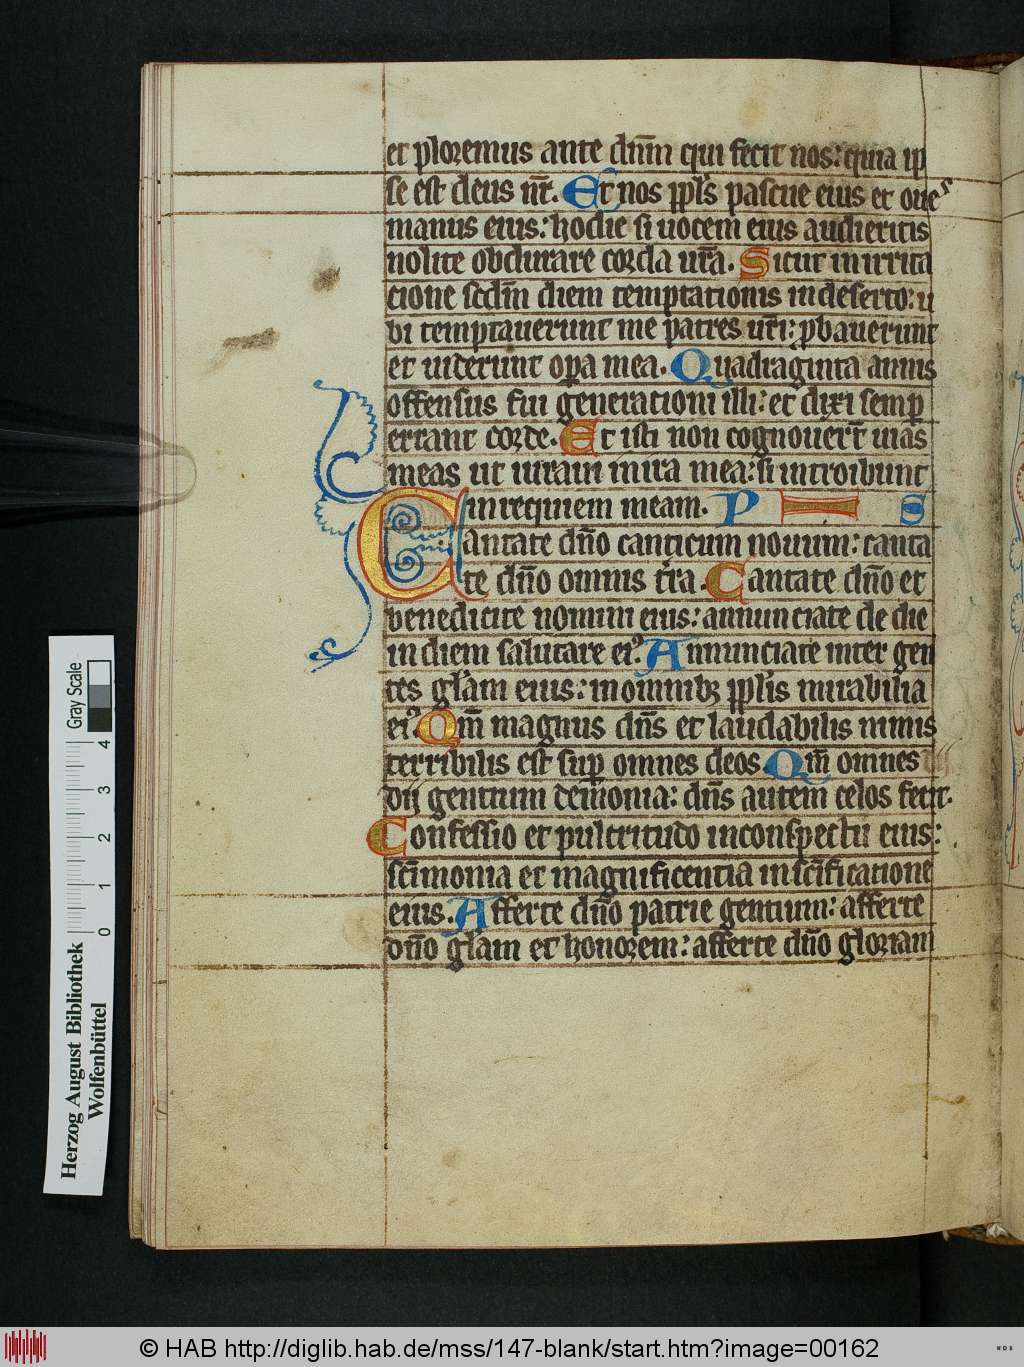 et ploremus ante dn̄m qui fecit nos: quia ip
se est deus nr̄. Et nos pp̄ls pascue eius et oues
manus eius: hodie si uocem eius audieritis
nolite obdurare corda ur̄a. Sicut in irrita
cione scdm̄ diem temptationis in deserto: u
bi temptauerunt me patres ur̄i: ꝓbauerunt
et uiderunt oꝑa mea. Quadraginta annis
offensus fui generationi illi: et dixi semꝑ
errant corde. Et isti non cognouert̄ uias
meas ut iuraui in ira mea: si introibunt
in requiem meam. P S
Cantate dn̄o canticum nouum: canta
te dn̄o omnis tr̄a. Cantate dn̄o et
benedicite nomini eius: annunciate de die
in diem salutare eiꝰ. Annunciate inter gen
tes gl̄am eius: in omnibꝫ pp̄lis mirabilia
eiꝰ. Qm̄ magnus dn̄s et laudabilis nimis
terribilis est suꝑ omnes deos. Qm̄ omnes
dij gentium demonia: dn̄s autem celos fecit.
Confessio et pulcritudo in conspectu eius:
sc̄imonia et magnificentia in sc̄ificatione
eius. Afferte dn̄o patrie gentium: afferte
dn̄o gl̄am et honorem: afferte dn̄o gloriam
Herzog August Bibliothek
Wolfenbüttel
0 1 2 3 4
Gray Scale
© HAB http://diglib.hab.de/mss/147-blank/start.htm?image=00162